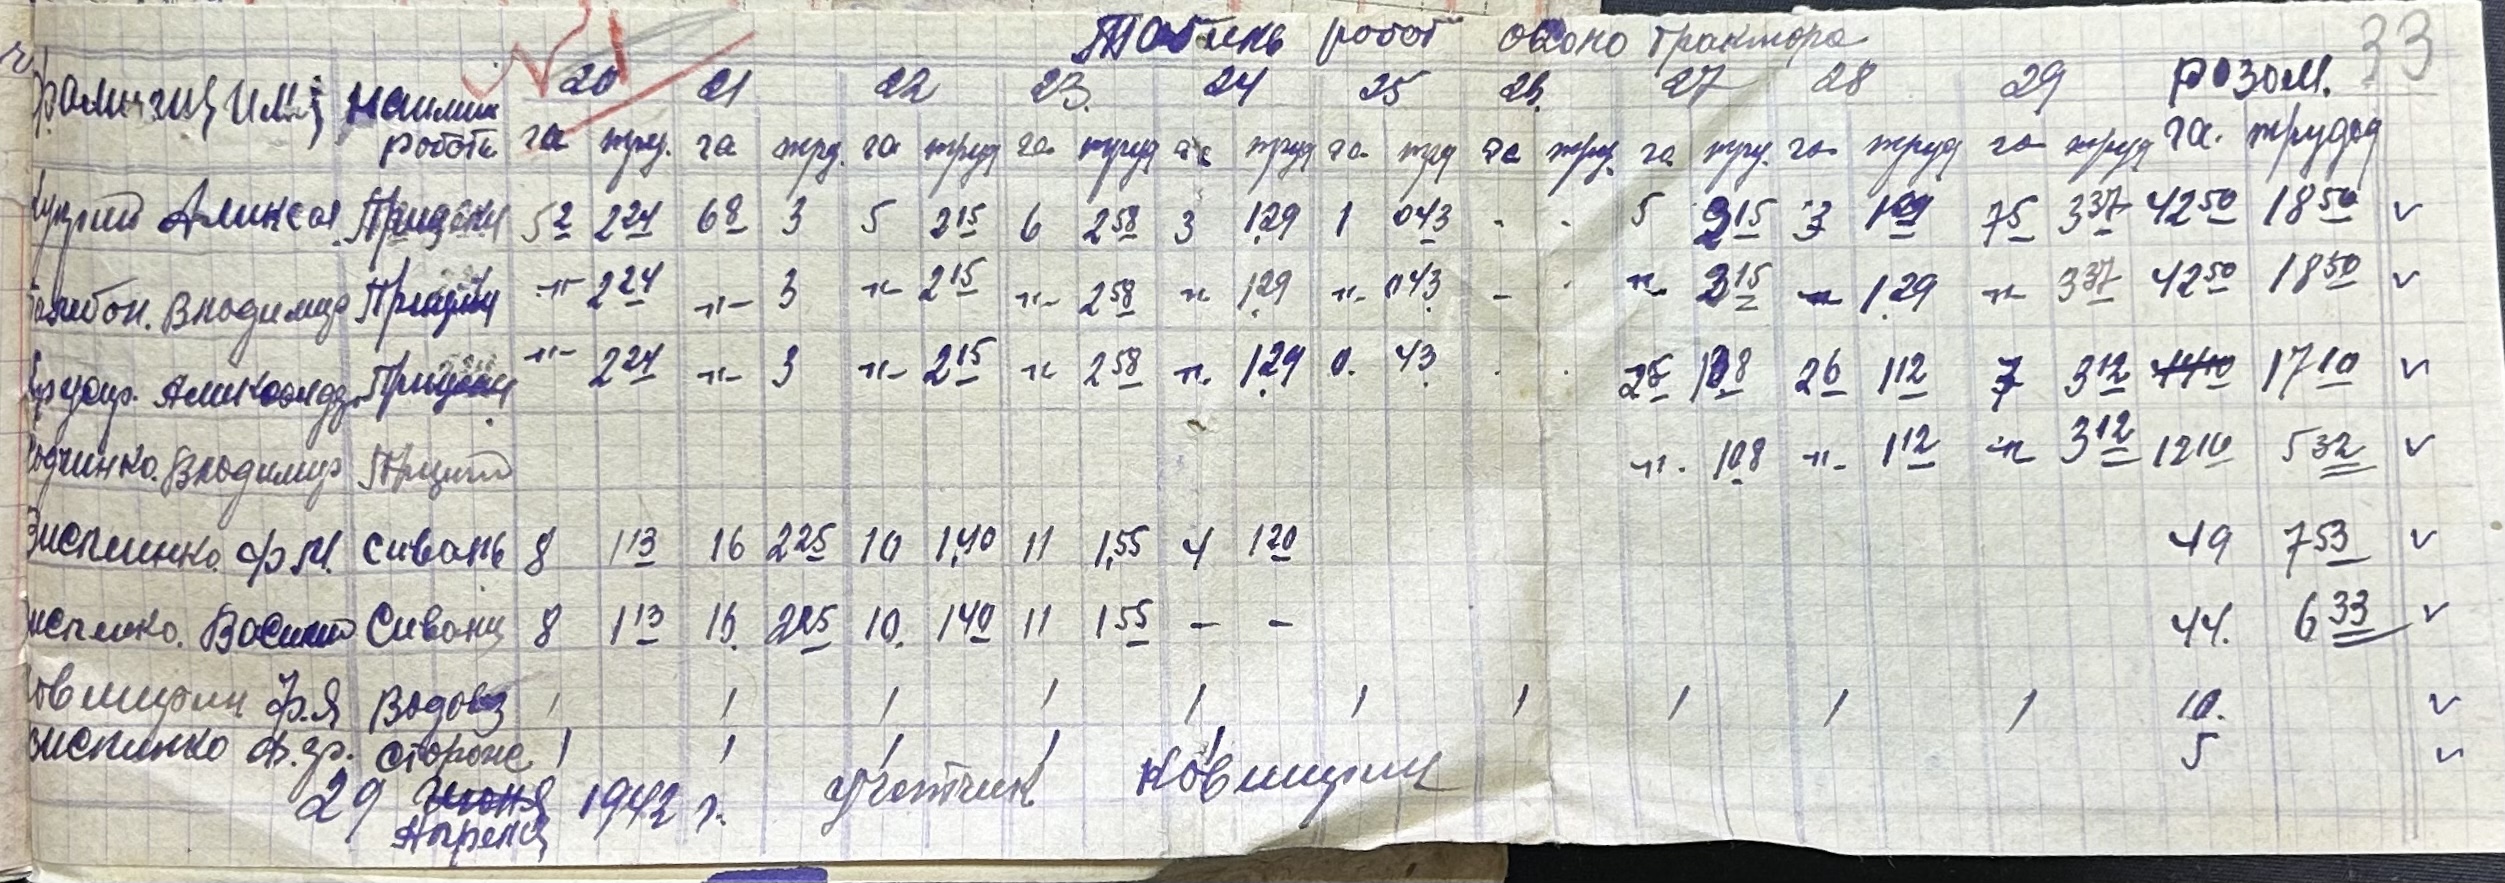 Табель робот около трактора 33
20 21 22 23. 24 25 26. 27 28 29 розом.
Фамилия имя наимин
роботи га труд. га труд. га труд га труд га труд га труд га труд. га труд. га труд га труд га. трудод
Алексан. Прицепщ 5 2 2 24 6 8 3 5 2 15 6 2 58 3 1.29 1 0 43 - - 5 2 15 3 1 29 7 5 3 37 42 50 18 50 v
Владимир Прицепщ -"- 2 24 -"- 3 -"- 2 15 -"- 2 58 -"- 1.29 -"- 0 43 - - -"- 2 15 -"- 1.29 -"- 3 37 42 50 18 50 v
Александр Прицепщ -"- 2 24 -"- 3 -"- 2 15 -"- 2 58 -"- 1.29 0. 43 . . 2 5 1 08 2 6 1 12 7 3 12 17 10 v
Владимир Прицеп -"- 1 08 -"- 1 12 -"- 3 12 12 10 5 32 v
Ф.М. Сивань 8 1 13 16 2 25 10 1.40 11 1.55 4 1 20 49 7 53 v
Васили Сиванщ 8 1 13 16. 2 25 10. 1 40 11 1 55 - - 44. 6 33 v
Ковширин Ф.Я Водовз 1 1 1 1 1 1 1 1 1 1 10. v
Ф.Гр. стороже 1 1 1 1 1 5 v
29 июня 1942 г. учотчик Ковширин
Апреля